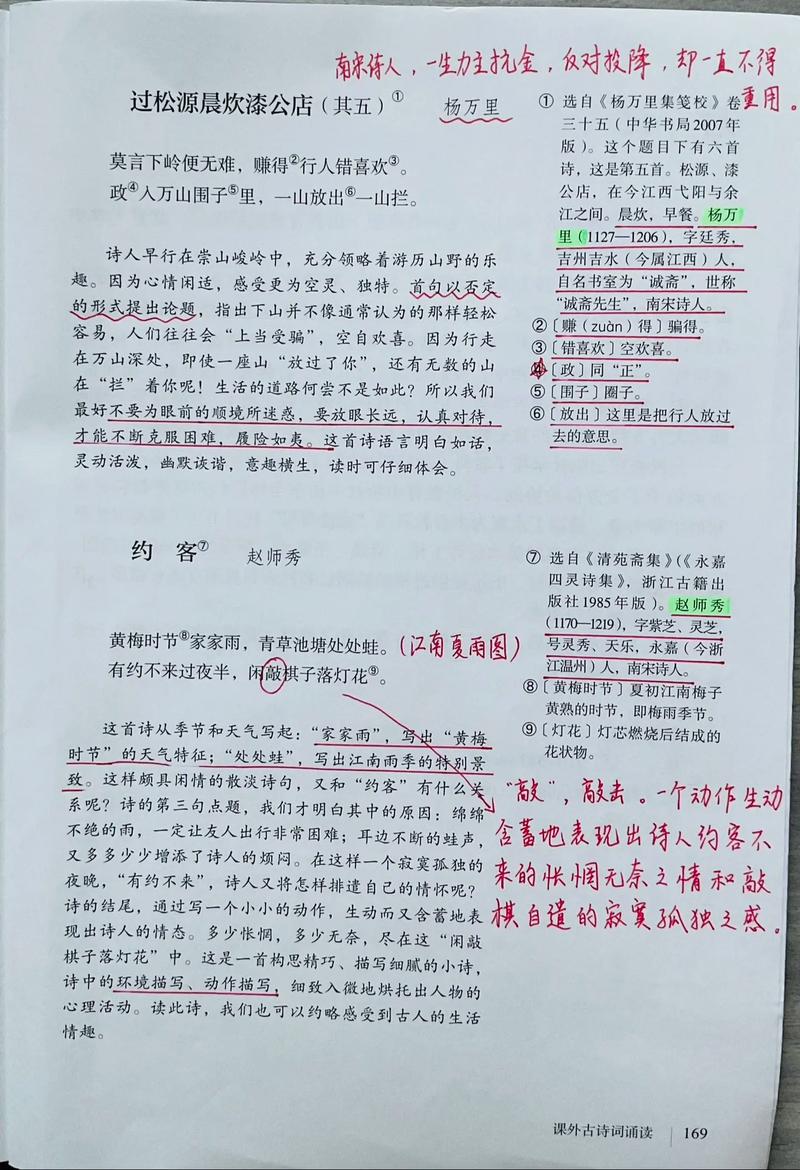 南宋诗人，一生力主抗金，反对投降，却一直不得
重用。
过松源晨炊漆公店（其五）① 杨万里
莫言下岭便无难，赚得②行人错喜欢③。
政④入万山围子⑤里，一山放出⑥一山拦。
诗人早行在崇山峻岭中，充分领略着游历山野的乐
趣。因为心情闲适，感受更为空灵、独特。首句以否定
的形式提出论题，指出下山并不像通常认为的那样轻松
容易，人们往往会“上当受骗”，空自欢喜。因为行走
在万山深处，即使一座山“放过了你”，还有无数的山
在“拦”着你呢！生活的道路何尝不是如此？所以我们
最好不要为眼前的顺境所迷惑，要放眼长远，认真对待，
才能不断克服困难，履险如夷。这首诗语言明白如话，
灵动活泼，幽默诙谐，意趣横生，读时可仔细体会。
① 选自《杨万里集笺校》卷
三十五（中华书局2007年
版）。这个题目下有六首
诗，这是第五首。松源、漆
公店，在今江西弋阳与余
江之间。晨炊，早餐。杨万
里（1127—1206），字廷秀，
吉州吉水（今属江西）人，
自名书室为“诚斋”，世称
“诚斋先生”，南宋诗人。
②〔赚（zuàn）得〕骗得。
③〔错喜欢〕空欢喜。
④〔政〕同“正”。
⑤〔围子〕圈子。
⑥〔放出〕这里是把行人放过
去的意思。
约 客⑦ 赵师秀
黄梅时节⑧家家雨，青草池塘处处蛙。（江南夏雨图）
有约不来过夜半，闲敲棋子落灯花⑨。
这首诗从季节和天气写起：“家家雨”，写出“黄梅
时节”的天气特征；“处处蛙”，写出江南雨季的特别景
致。这样颇具闲情的散淡诗句，又和“约客”有什么关
系呢？诗的第三句点题，我们才明白其中的原因：绵绵
不绝的雨，一定让友人出行非常困难；耳边不断的蛙声，
又多多少少增添了诗人的烦闷。在这样一个寂寞孤独的
夜晚，“有约不来”，诗人又将怎样排遣自己的情怀呢？
诗的结尾，通过写一个小小的动作，生动而又含蓄地表
现出诗人的情态。多少怅惘，多少无奈，尽在这“闲敲
棋子落灯花”中。这是一首构思精巧、描写细腻的小诗，
诗中的环境描写、动作描写，细致入微地烘托出人物的
心理活动。读此诗，我们也可以约略感受到古人的生活
情趣。
⑦ 选自《清苑斋集》（《永嘉
四灵诗集》，浙江古籍出
版社1985年版）。赵师秀
（1170—1219），字紫芝、灵芝，
号灵秀、天乐，永嘉（今浙
江温州）人，南宋诗人。
⑧〔黄梅时节〕夏初江南梅子
黄熟的时节，即梅雨季节。
⑨〔灯花〕灯芯燃烧后结成的
花状物。
“敲”，敲击。一个动作生动
含蓄地表现出诗人约客不
来的怅惘无奈之情和敲
棋自遣的寂寞孤独之感。
课外古诗词诵读 169